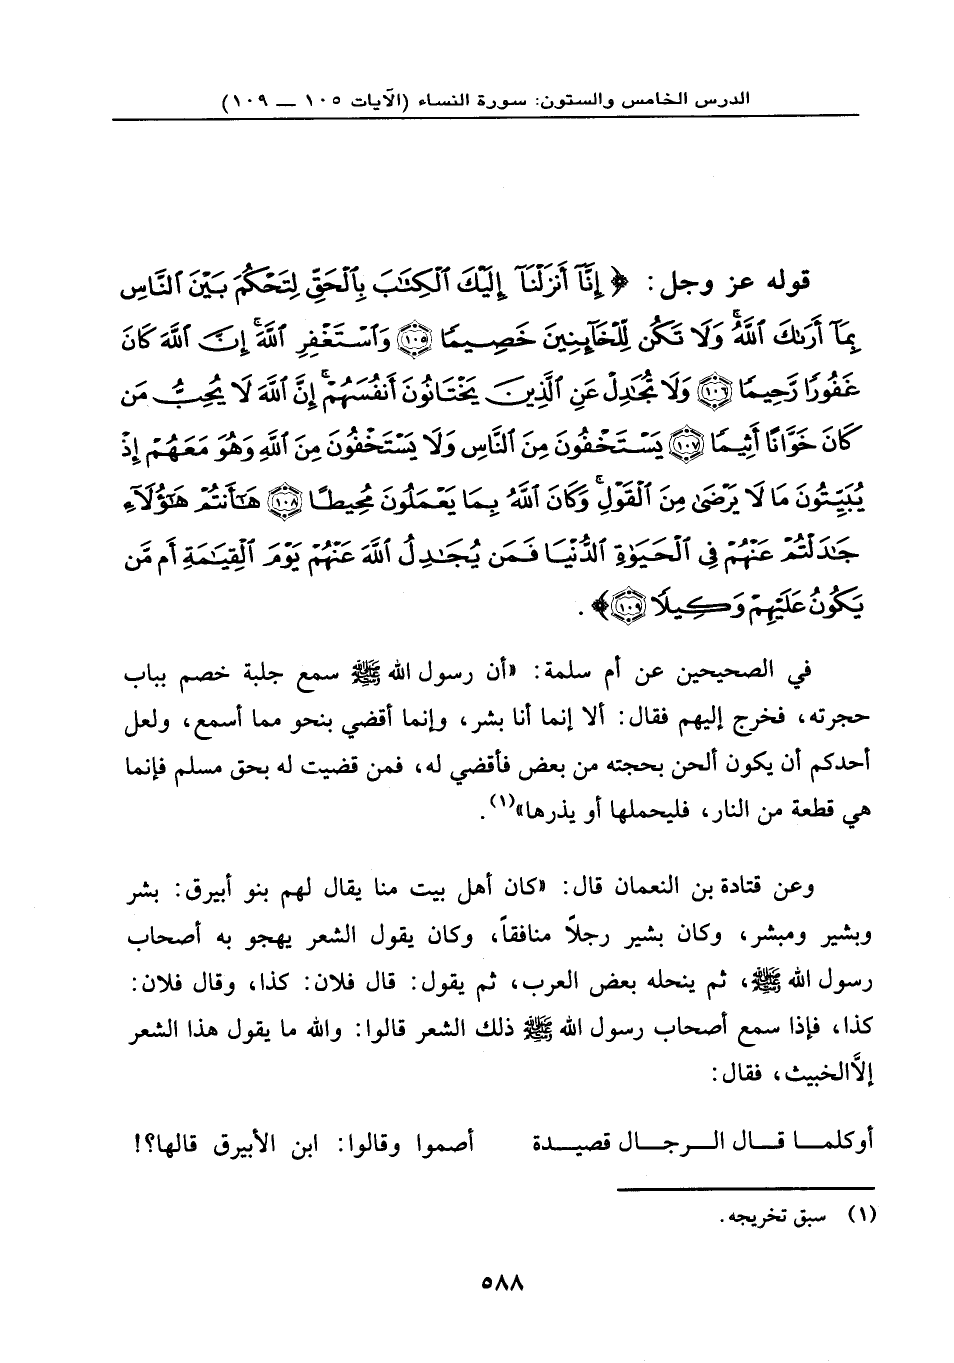 الدرس الخامس والستون: سورة النساء (الآيات ١٠٥ — ١٠٩)
قوله عز وجل: ﴿ إِنَّآ أَنزَلْنَآ إِلَيْكَ ٱلْكِتَٰبَ بِٱلْحَقِّ لِتَحْكُمَ بَيْنَ ٱلنَّاسِ
بِمَآ أَرَىٰكَ ٱللَّهُ ۚ وَلَا تَكُن لِّلْخَآئِنِينَ خَصِيمًا ١٠٥ وَٱسْتَغْفِرِ ٱللَّهَ ۖ إِنَّ ٱللَّهَ كَانَ
غَفُورًا رَّحِيمًا ١٠٦ وَلَا تُجَٰدِلْ عَنِ ٱلَّذِينَ يَخْتَانُونَ أَنفُسَهُمْ ۚ إِنَّ ٱللَّهَ لَا يُحِبُّ مَن
كَانَ خَوَّانًا أَثِيمًا ١٠٧ يَسْتَخْفُونَ مِنَ ٱلنَّاسِ وَلَا يَسْتَخْفُونَ مِنَ ٱللَّهِ وَهُوَ مَعَهُمْ إِذْ
يُبَيِّتُونَ مَا لَا يَرْضَىٰ مِنَ ٱلْقَوْلِ ۚ وَكَانَ ٱللَّهُ بِمَا يَعْمَلُونَ مُحِيطًا ١٠٨ هَٰٓأَنتُمْ هَٰٓؤُلَآءِ
جَٰدَلْتُمْ عَنْهُمْ فِى ٱلْحَيَوٰةِ ٱلدُّنْيَا فَمَن يُجَٰدِلُ ٱللَّهَ عَنْهُمْ يَوْمَ ٱلْقِيَٰمَةِ أَم مَّن
يَكُونُ عَلَيْهِمْ وَكِيلًا ١٠٩﴾ .
في الصحيحين عن أم سلمة: «أن رسول الله ﷺ سمع جلبة خصم بباب
حجرته، فخرج إليهم فقال: ألا إنما أنا بشر، وإنما أقضي بنحو مما أسمع، ولعل
أحدكم أن يكون ألحن بحجته من بعض فأقضي له، فمن قضيت له بحق مسلم فإنما
هي قطعة من النار، فليحملها أو يذرها»(١).
وعن قتادة بن النعمان قال: «كان أهل بيت منا يقال لهم بنو أبيرق: بشر
وبشير ومبشر، وكان بشير رجلاً منافقاً، وكان يقول الشعر يهجو به أصحاب
رسول الله ﷺ، ثم ينحله بعض العرب، ثم يقول: قال فلان: كذا، وقال فلان:
كذا، فإذا سمع أصحاب رسول الله ﷺ ذلك الشعر قالوا: والله ما يقول هذا الشعر
إلاَّالخبيث، فقال:
أوكلمــا قــال الــرجــال قصيــدة أصموا وقالوا: ابن الأبيرق قالها؟!
(١) سبق تخريجه.
٥٨٨